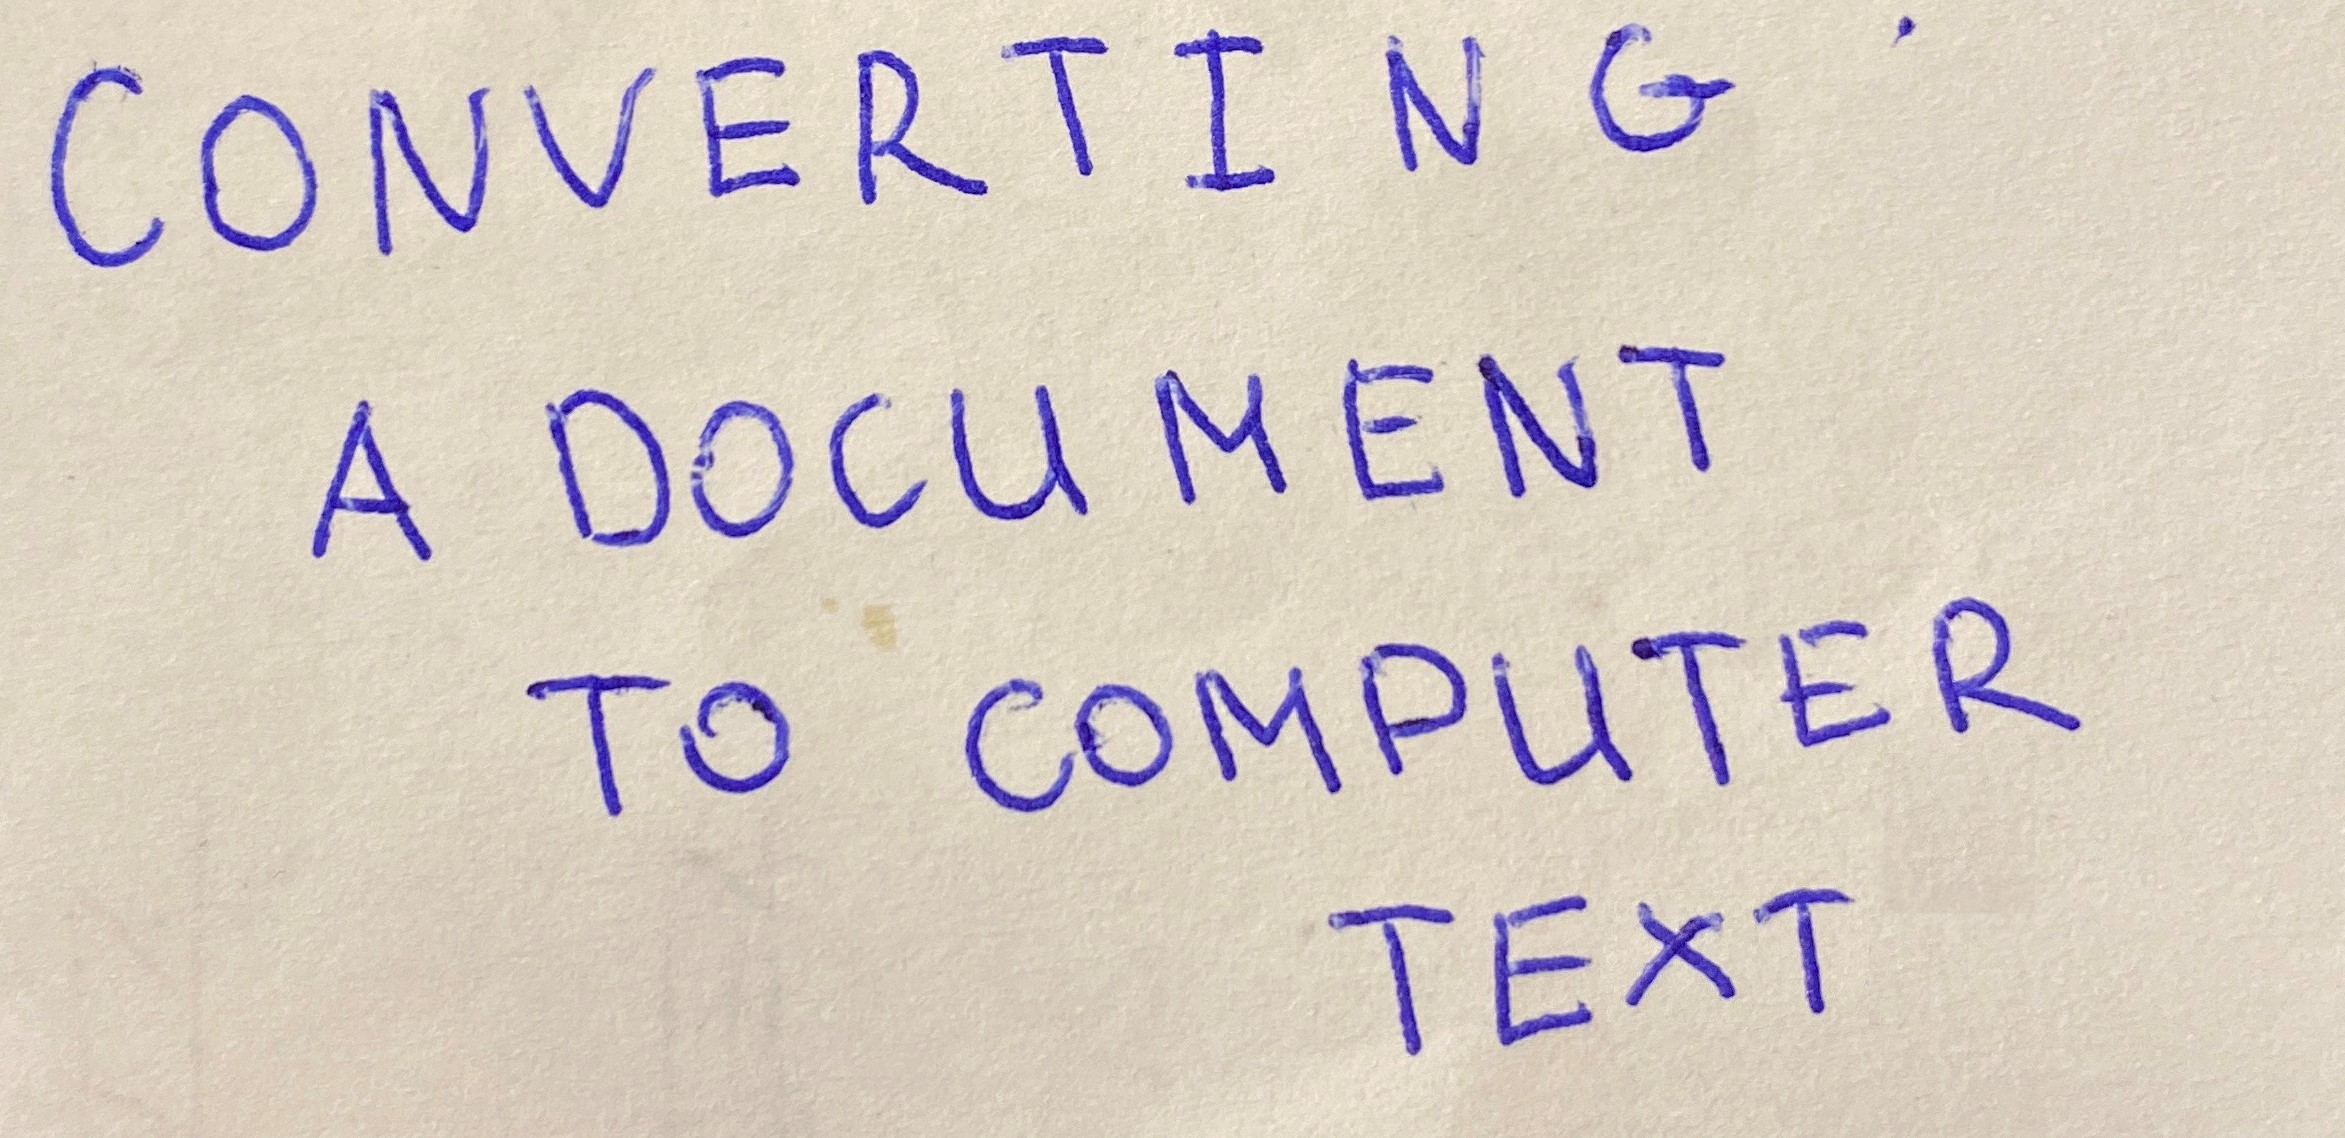 CONVERTING
A DOCUMENT
TO COMPUTER
TEXT